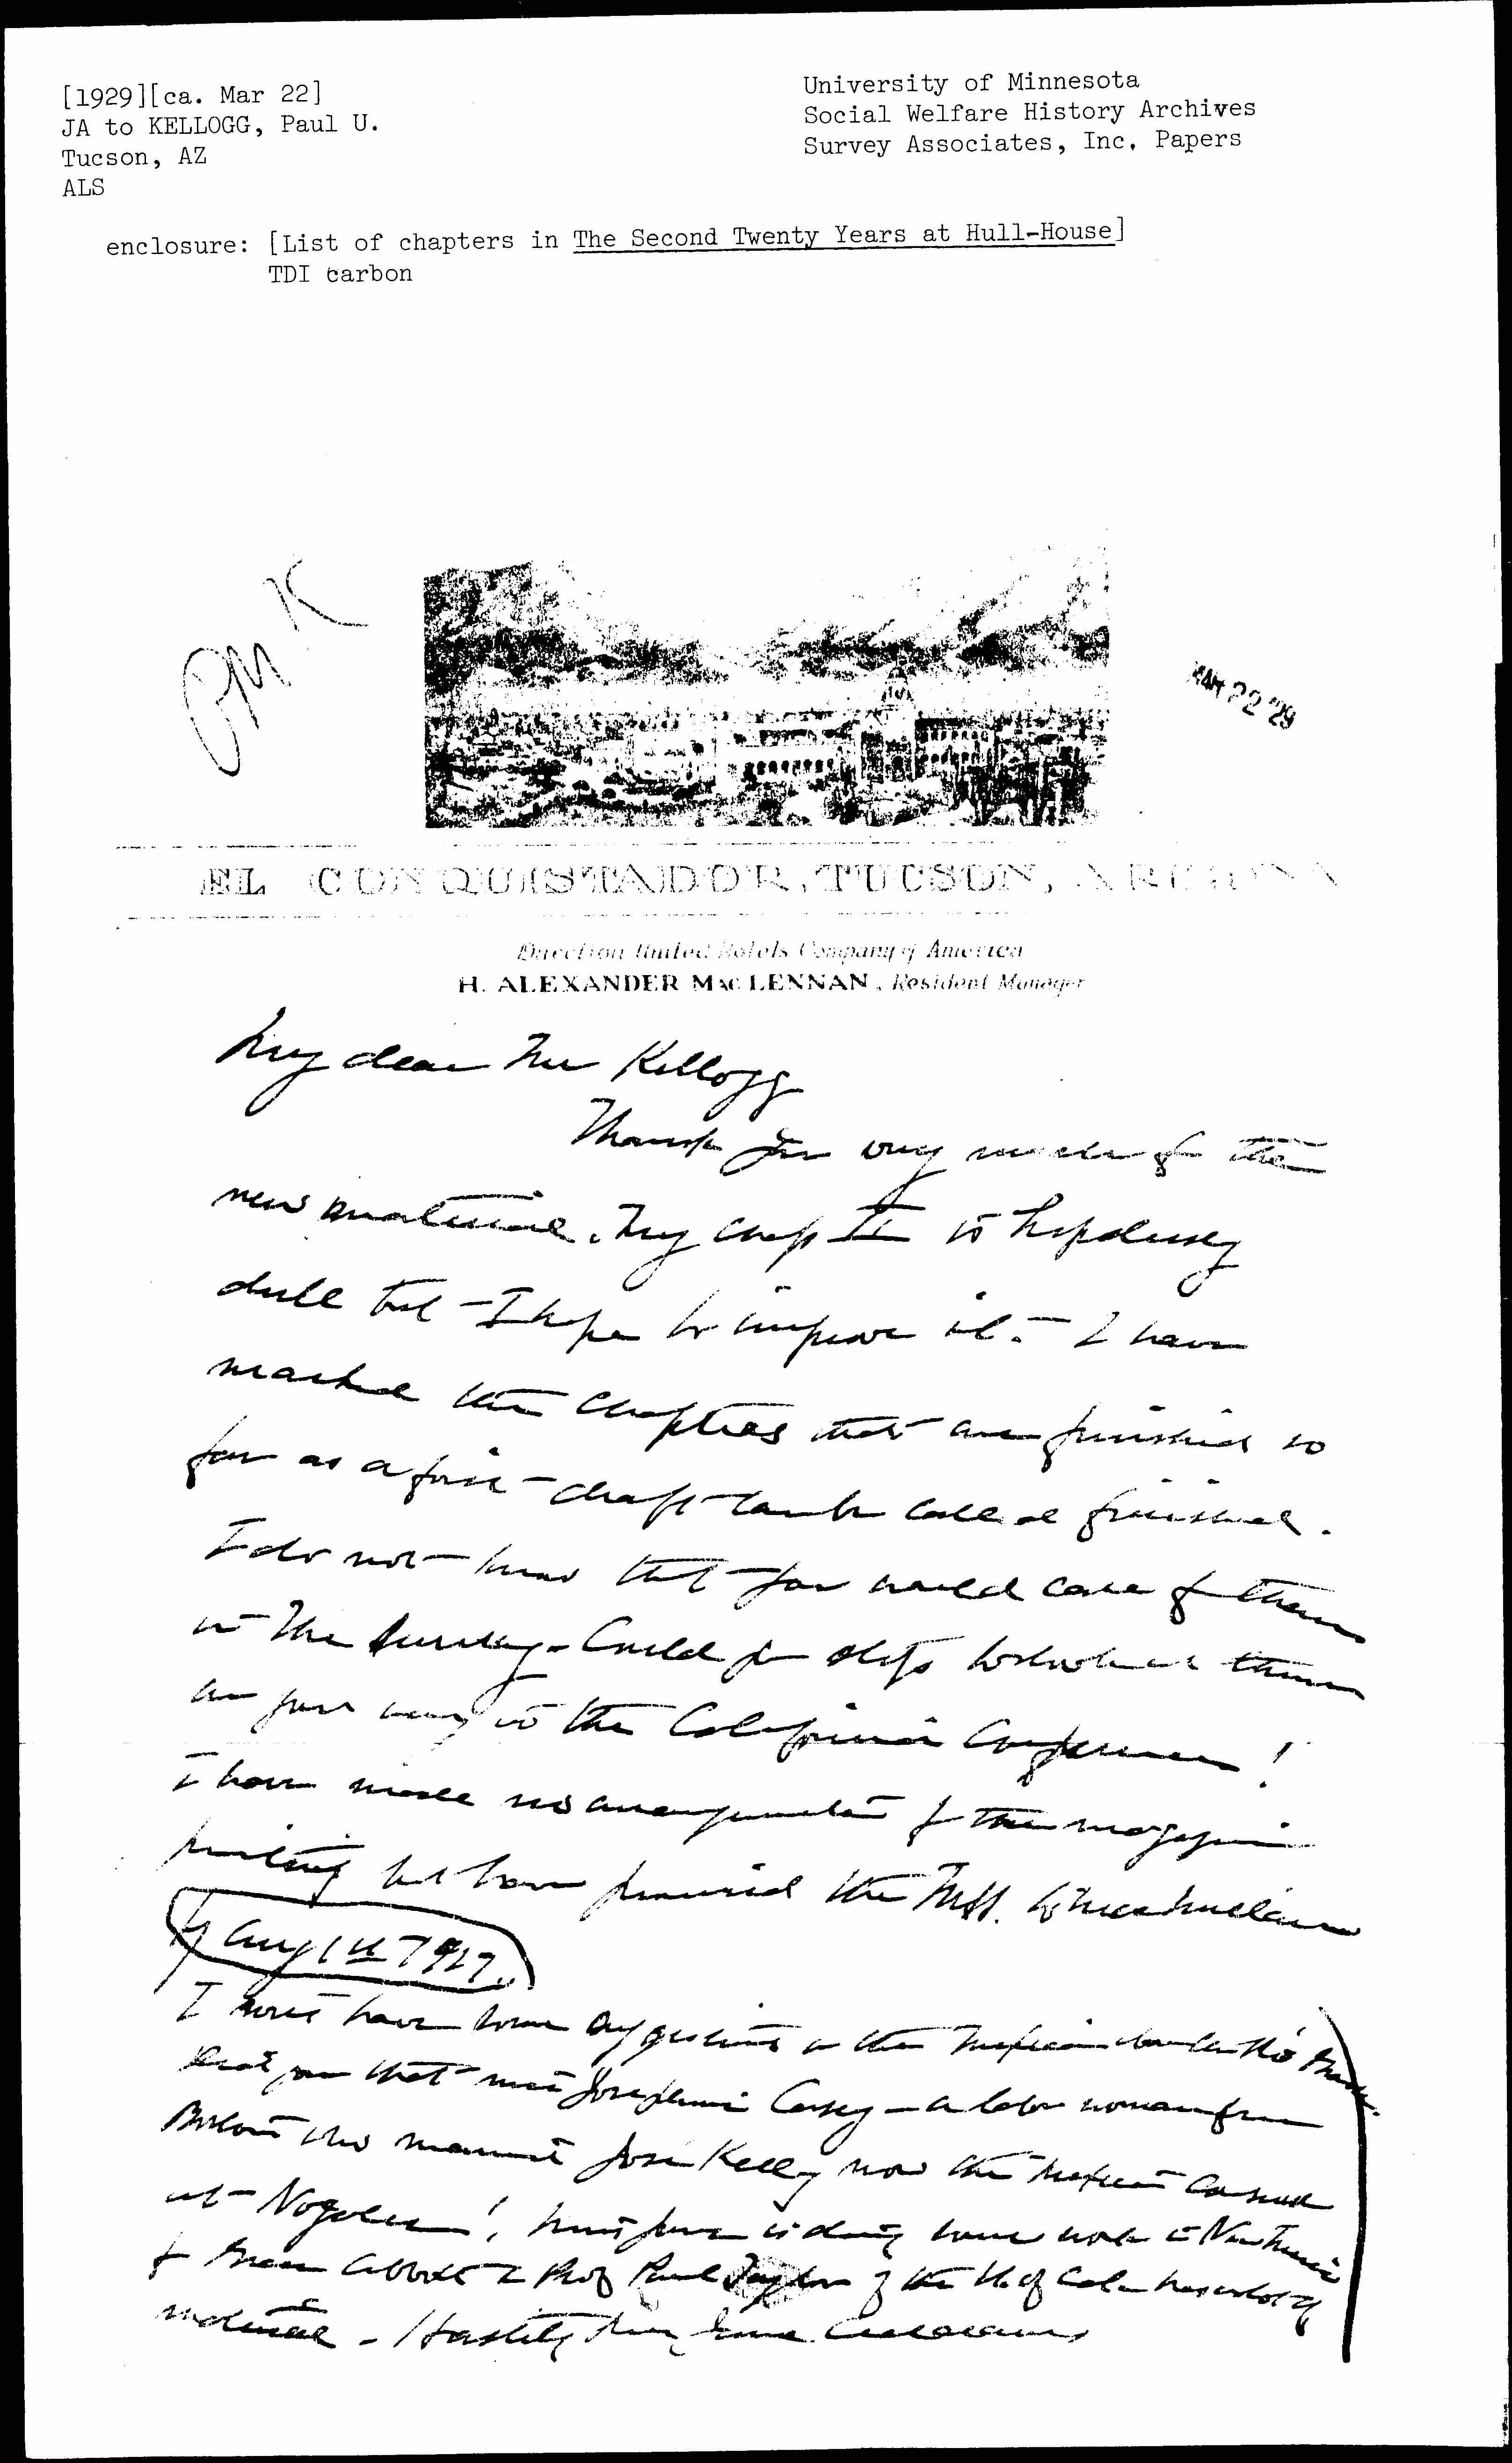 [1929][ca. Mar 22]
JA to KELLOGG, Paul U.
Tucson, AZ
ALS
University of Minnesota
Social Welfare History Archives
Survey Associates, Inc. Papers
enclosure: [List of chapters in The Second Twenty Years at Hull-House]
TDI carbon
PM K
MAR 22 '29
EL CONQUISTADOR, TUCSON, ARIZONA
Direction United Hotels Company of America
H. ALEXANDER MAC LENNAN, Resident Manager
My dear Mr Kellogg
Thank you very much for the
new material. My chap II is hopelessly
dull but I hope to improve it. - I have
marked the chapters that are finished so
far as a first draft can be called finished.
I do not know that you would care for them
in The Survey - Could you stop to look at them
on your way to the California Conference!
I have made no arrangements for the magazine
printing but have promised the Mss. to Macmillan
by Aug 1st
I have some suggestions on the Mexican
you that Miss Josephine Casey - a labor woman from
who married Jose Kelly now the Mexican Consul
at Nogales! is doing some work in New Mexico
for Grace Abbott & Prof Paul Taylor of the U. of Cal. has a lot of
material - Hastily yours Jane Addams